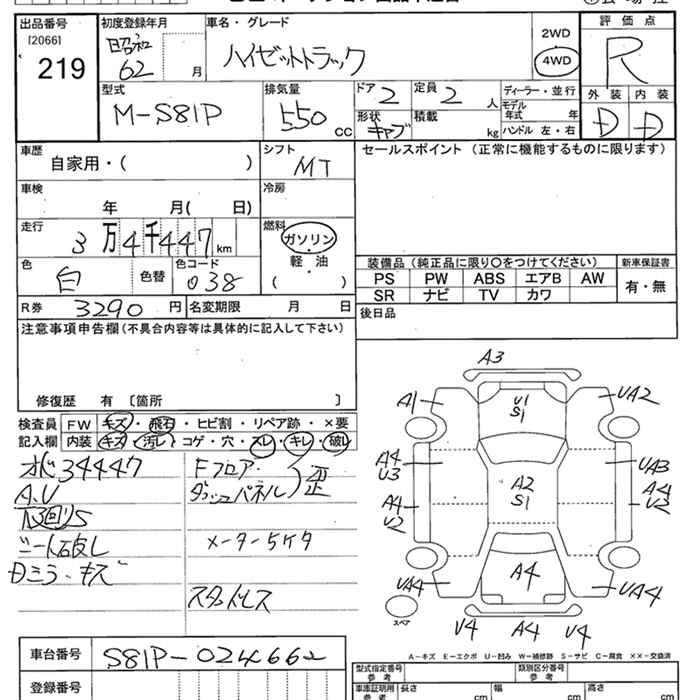 出品番号 初度登録年月 車名・グレード 評価点
[2066]
219 昭和 62 月 ハイゼットトラック 2WD 4WD R
型式 排気量 ドア 2 定員 2 人 ディーラー・並行 外装 内装
M-S81P 550 cc 形状 キャブ 積載 kg モデル年式 年 D D
ハンドル 左・右
車歴 シフト セールスポイント (正常に機能するものに限ります)
自家用・( ) MT
車検 冷房
年 月( 日)
走行 燃料
3万4千447km ガソリン
色 色コード 軽・油 装備品 (純正品に限り○をつけてください) 新車保証書
白 色替 038 ( ) PS PW ABS エアB AW 有・無
SR ナビ TV カワ
R券 3290円 名変期限 月 日 後日品
注意事項申告欄(不具合内容等は具体的に記入して下さい)
修復歴 有 〔箇所 〕
検査員 FW キズ・飛石・ヒビ割・リペア跡・×要
記入欄 内装 キズ・汚レ・コゲ・穴・スレ・キレ・破レ
34447 Fフロア・
A.U ダッシュパネル)歪
下回りS
シート破レ メーター5ケタ
Dミラ・キズ
スタットレス
A3
A1 U1 S1 UA2
A4 U3 UA3
A2 S1
A4 U2 A4 U2
UA4 A4 UA4
スペア
U4 A4 U4
A-キズ E-エクボ U-凹み W-補修跡 S-サビ C-腐食 ××-交換済
車台番号 S81P-024662
型式指定番号 参考 類別区分番号 参考
登録番号
車庫証明用 参考 長さ cm 幅 cm 高さ cm